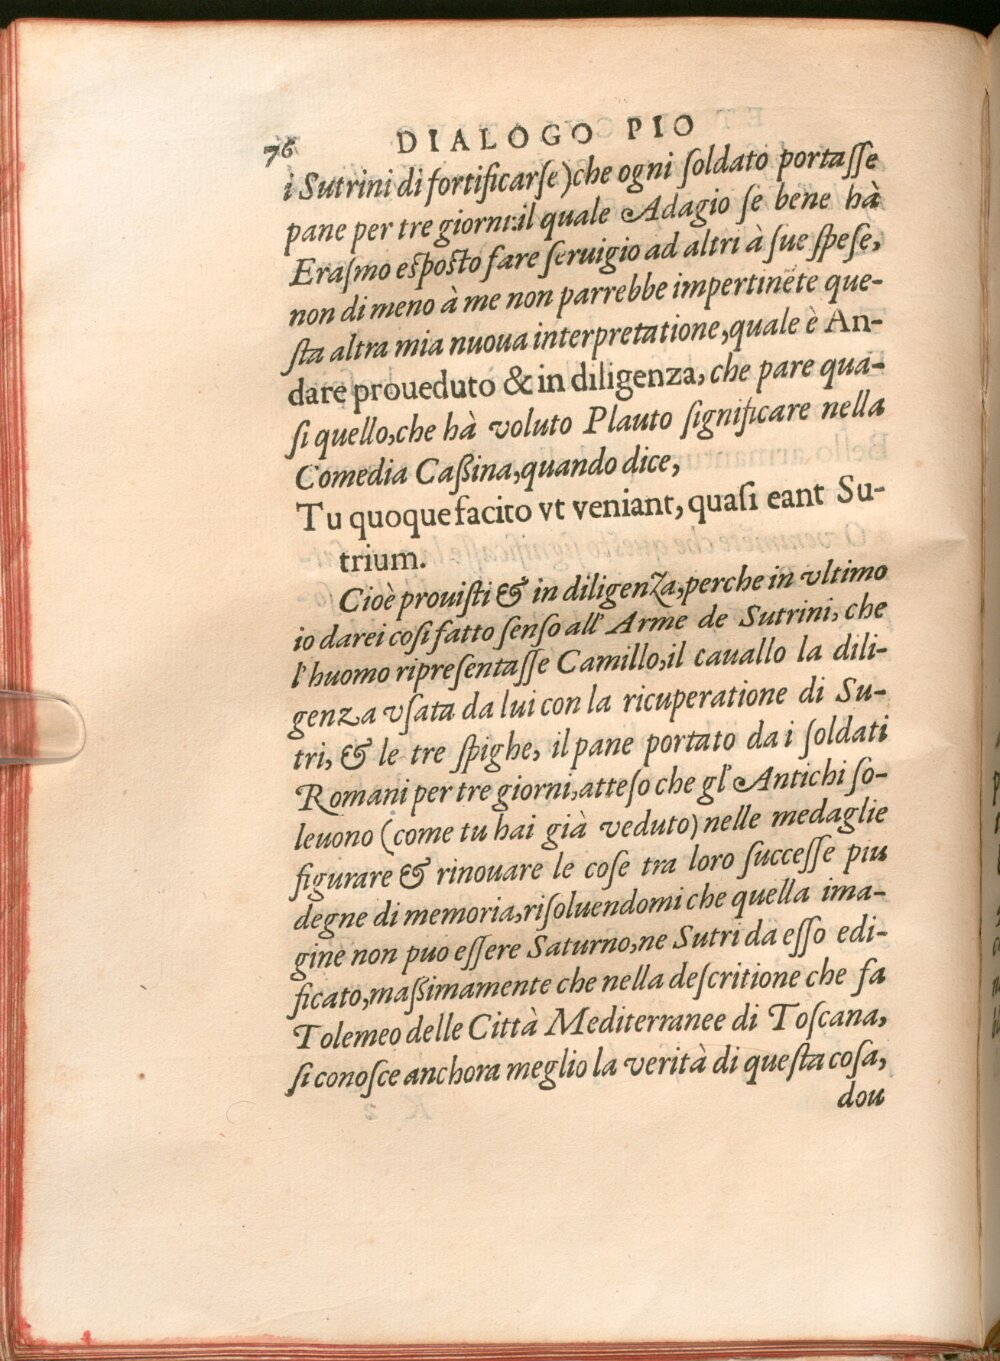 76 DIALOGO PIO
i Sutrini di fortificarſe) che ogni ſoldato portaſſe
pane per tre giorni: il quale Adagio ſe bene hà
Eraſmo eſpoſto fare ſeruigio ad altri à ſue ſpeſe,
non di meno à me non parrebbe impertinēte que-
ſta altra mia nuoua interpretatione, quale è An-
dare proueduto & in diligenza, che pare qua-
ſi quello, che hà voluto Plauto ſignificare nella
Comedia Caßina, quando dice,
Tu quoque facito vt veniant, quaſi eant Su-
trium.
Cioè prouiſti & in diligenza, perche in vltimo
io darei coſi fatto ſenſo all' Arme de Sutrini, che
l'huomo ripreſentaſſe Camillo, il cauallo la dili-
genza vſata da lui con la ricuperatione di Su-
tri, & le tre ſpighe, il pane portato da i ſoldati
Romani per tre giorni, atteſo che gl' Antichi ſo-
leuono (come tu hai già veduto) nelle medaglie
figurare & rinouare le coſe tra loro ſucceſſe piu
degne di memoria, riſoluendomi che quella ima-
gine non puo eſſere Saturno, ne Sutri da eſſo edi-
ficato, maßimamente che nella deſcritione che fa
Tolemeo delle Città Mediterranee di Toſcana,
ſi conoſce anchora meglio la verità di queſta coſa,
dou